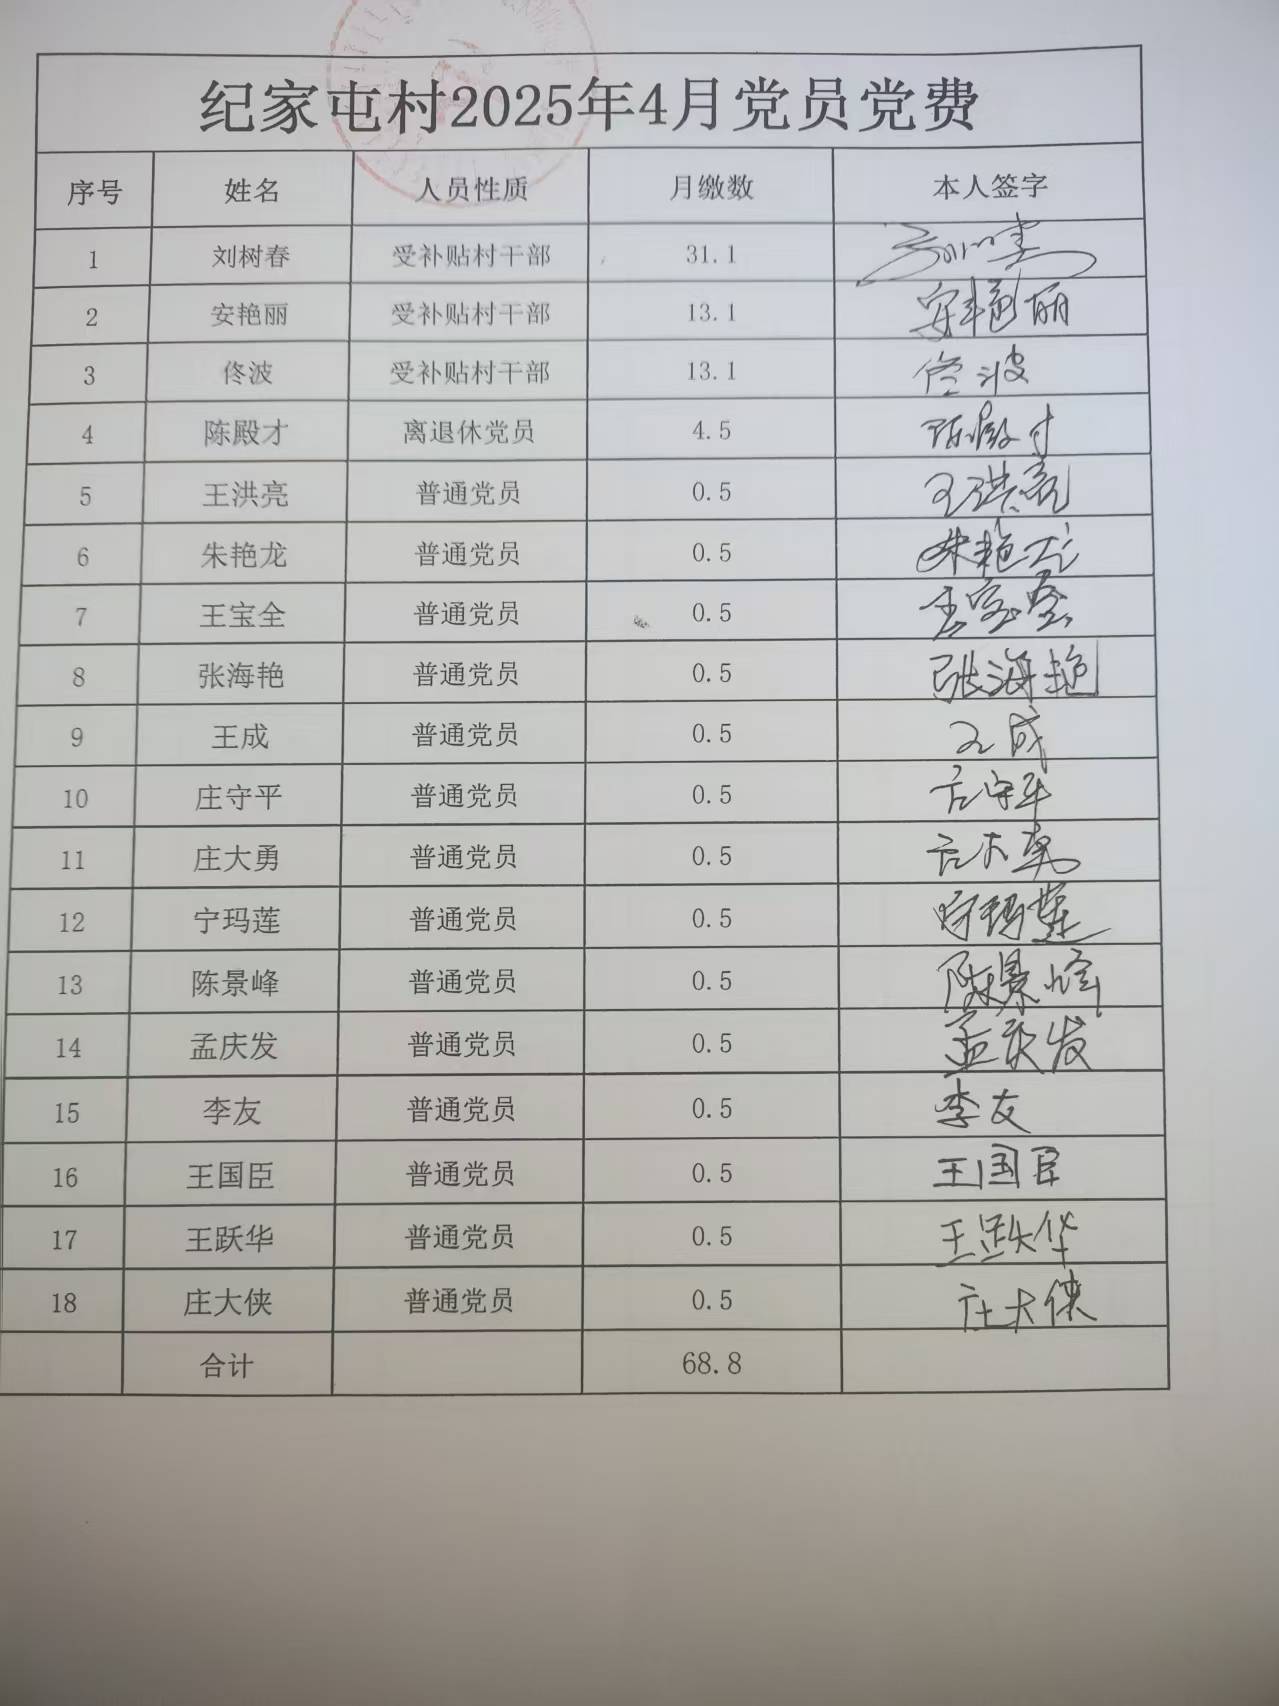 纪家屯村2025年4月党员党费
序号 姓名 人员性质 月缴数 本人签字
1 刘树春 受补贴村干部 31.1
2 安艳丽 受补贴村干部 13.1 安艳丽
3 佟波 受补贴村干部 13.1 佟波
4 陈殿才 离退休党员 4.5 陈殿才
5 王洪亮 普通党员 0.5 王洪亮
6 朱艳龙 普通党员 0.5 朱艳龙
7 王宝全 普通党员 0.5 王宝全
8 张海艳 普通党员 0.5 张海艳
9 王成 普通党员 0.5 王成
10 庄守平 普通党员 0.5 庄守平
11 庄大勇 普通党员 0.5 庄大勇
12 宁玛莲 普通党员 0.5 宁玛莲
13 陈景峰 普通党员 0.5 陈景峰
14 孟庆发 普通党员 0.5 孟庆发
15 李友 普通党员 0.5 李友
16 王国臣 普通党员 0.5 王国臣
17 王跃华 普通党员 0.5 王跃华
18 庄大侠 普通党员 0.5 庄大侠
合计 68.8